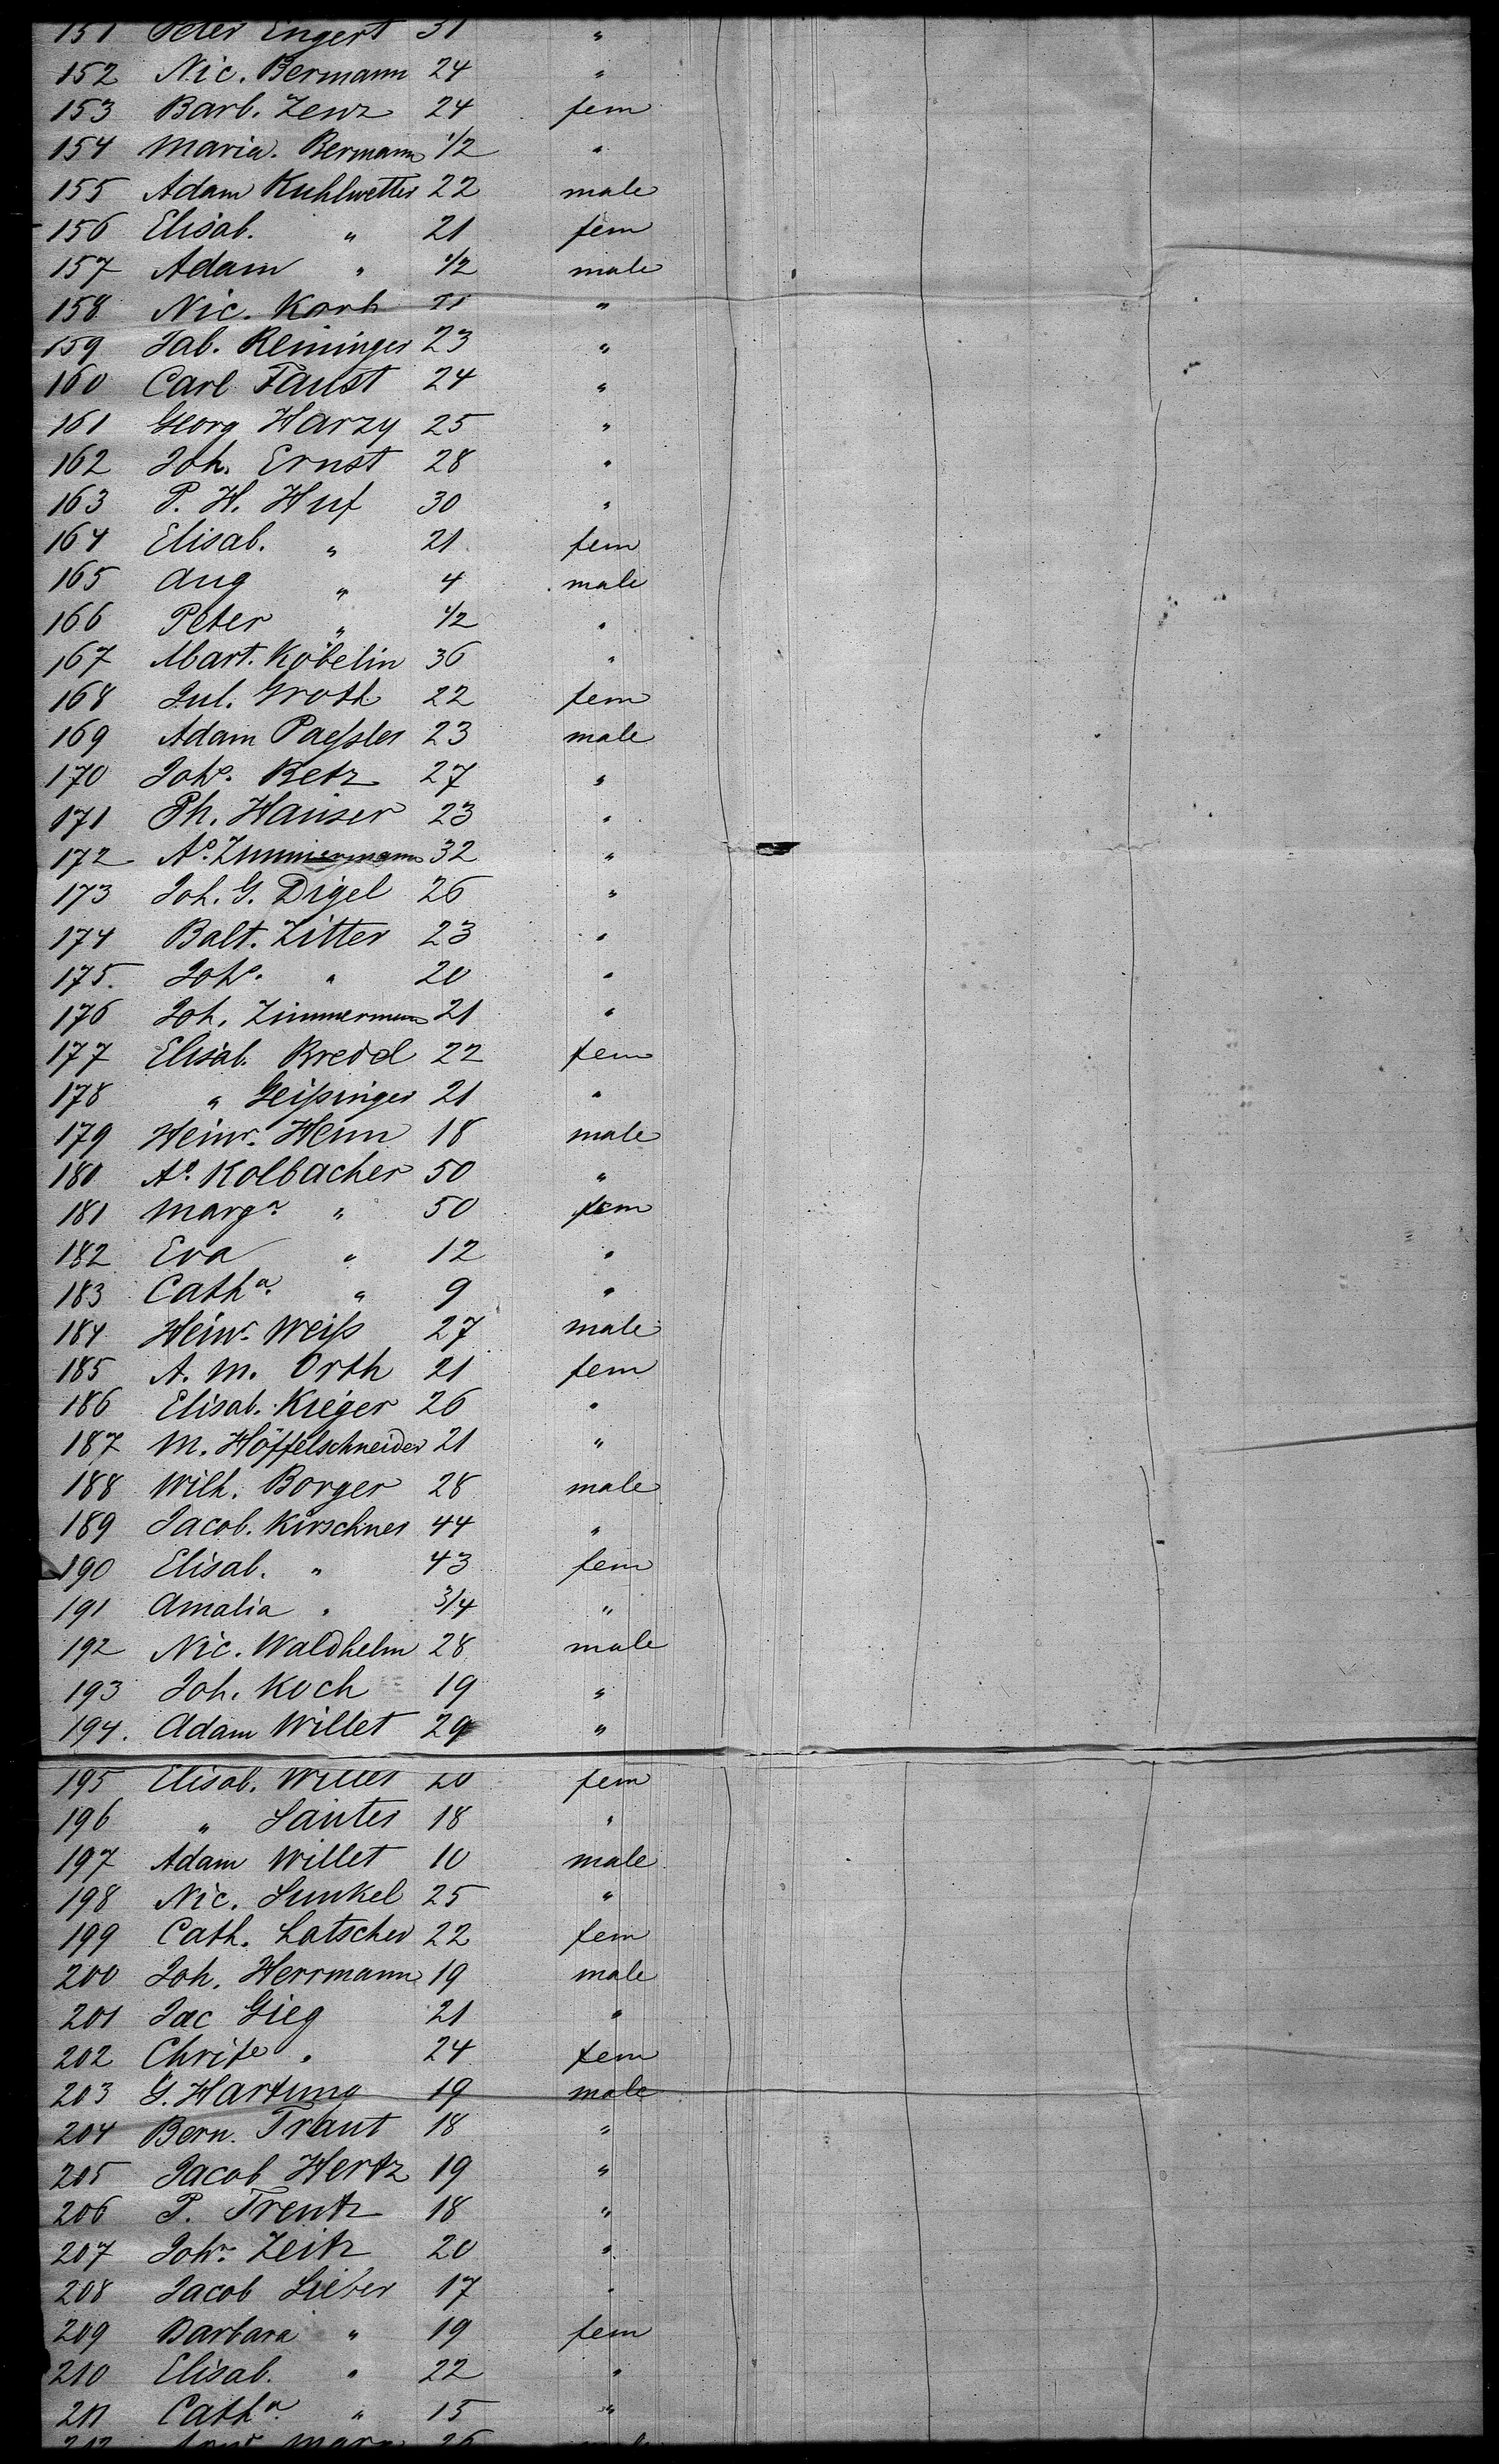 151 Peter Engert 31 "
152 Nic. Bermann 24 "
153 Barb. Zenz 24 fem
154 Maria. Bermann 1/2 "
155 Adam Kuhlwetter 22 male
156 Elisab. " 21 fem
157 Adam " 1/2 male
158 Nic. Karb 21 "
159 Jab. Reininger 23 "
160 Carl Faust 24 "
161 Georg Harzy 25 "
162 Joh. Ernst 28 "
163 P. H. Huf 30 "
164 Elisab. " 21 fem
165 Aug " 4 male
166 Peter " 1/2 "
167 Mart. Köbelin 36 "
168 Jul. Groth 22 fem
169 Adam Paeßler 23 male
170 Johs. Betz 27 "
171 Ph. Hauser 23 "
172 As. Zimmermann 32 "
173 Joh. G. Digel 26 "
174 Balt. Zitter 23 "
175. Johs. " 20 "
176 Joh. Zimmermann 21 "
177 Elisab. Breid 22 fem
178 " Geißinger 21 "
179 Heinr. Henn 18 male
180 As. Kolbacher 50 "
181 Marga. " 50 fem
182 Eva " 12 "
183 Catha. " 9 "
184 Heinr. Weiß 27 male
185 A. M. Orth 21 fem
186 Elisab. Krieger 26 "
187 M. Höffelschneider 21 "
188 Wilh. Borger 28 male
189 Jacob. Kirschner 44 "
190 Elisab. " 43 fem
191 Amalia " 3/4 "
192 Nic. Waldhelm 28 male
193 Joh. Koch 19 "
194. Adam Willet 29 "
195 Elisab. Willet 20 fem
196 " Sauter 18 "
197 Adam Willet 10 male
198 Nic. Sunkel 25 "
199 Cath. Latscher 22 fem
200 Joh. Herrmann 19 male
201 Jac Gieg 21 "
202 Christe " 24 fem
203 G. Hartung 19 male
204 Bern. Traut 18 "
205 Jacob Hertz 19 "
206 P. Trentz 18 "
207 Johs. Zeitz 20 "
208 Jacob Sieber 17 "
209 Barbara " 19 fem
210 Elisab. " 22 "
211 Catha. " 15 "
212 Marx 26 male